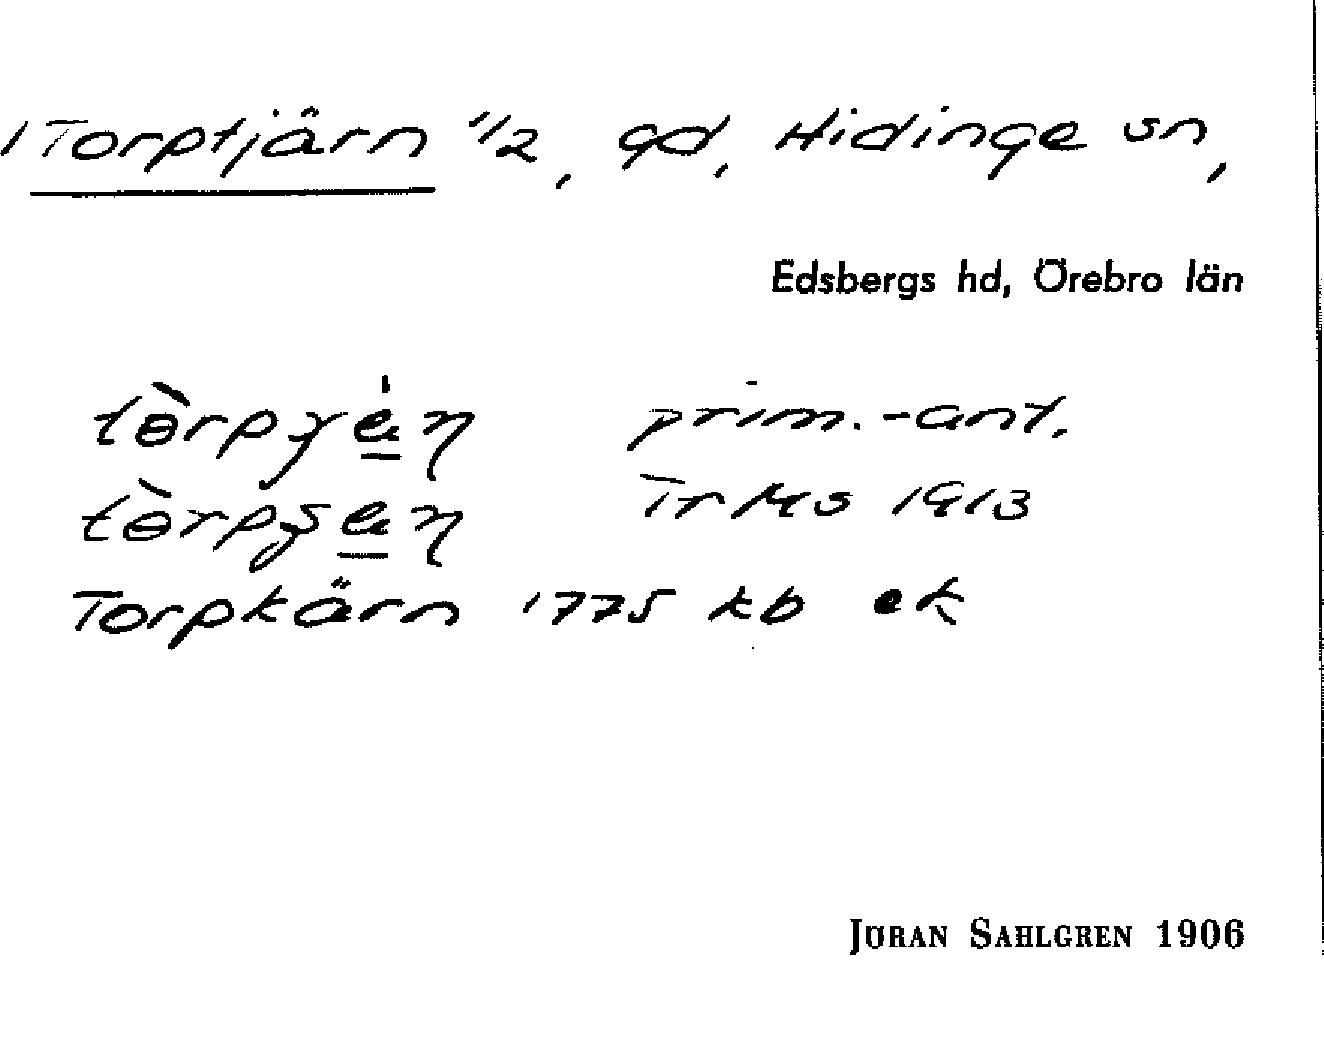 1 Torptjärn 1/2, gd, Hidinge sn,
Edsbergs hd, Örebro län
prim.-ant.
Tr Ms 1913
Torpkärn 1775 kb ek
JÖRAN SAHLGREN 1906